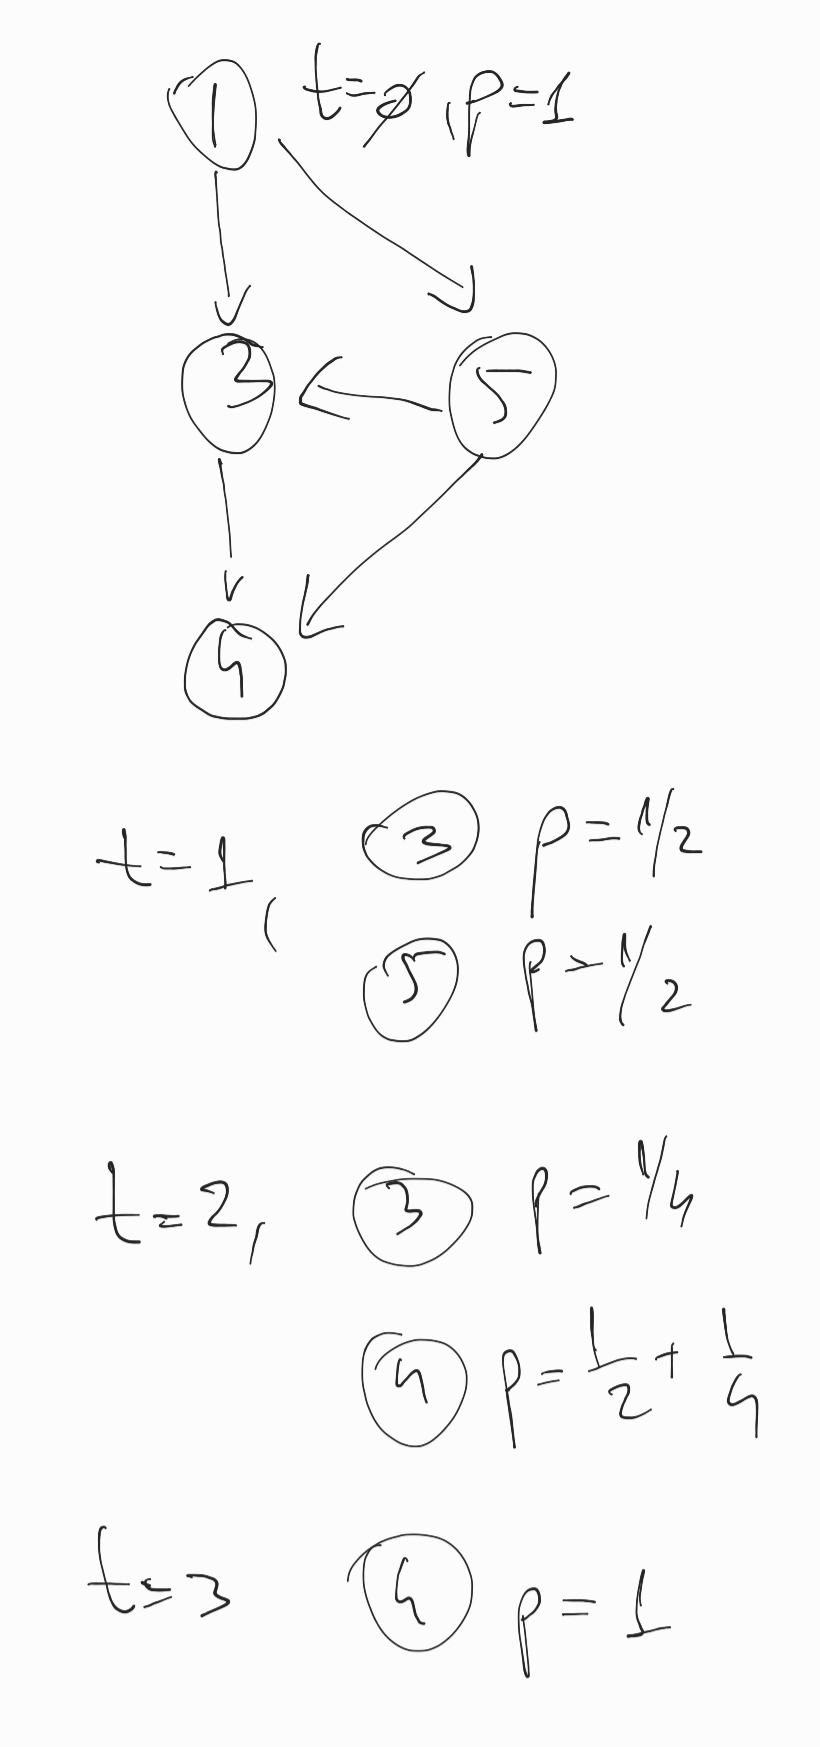 1 t=0, p=1
3 5
4
t=1, 3 p=1/2
5 p=1/2
t=2, 3 p=1/4
4 p=1/2+1/4
t=3 4 p=1